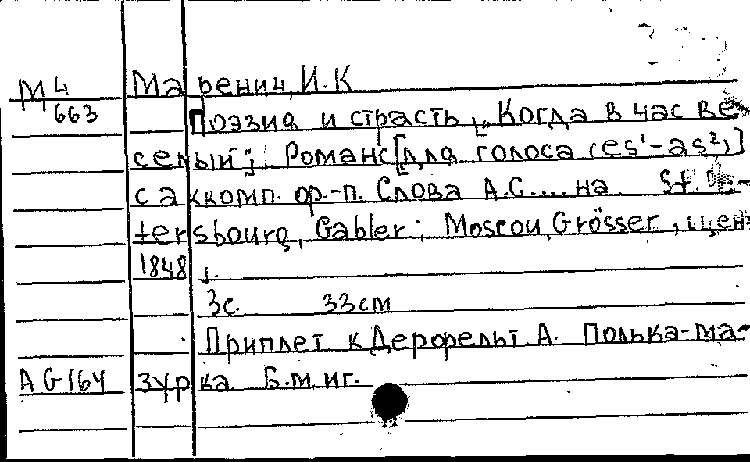 М4 Маренич И.К
663 Поэзия и страсть, „Когда в час ве-
селый"; Романс [для голоса (es¹-as²)]
с аккомп. ф-п. Слова А.С.... на. St. Pe-
tersbourg, Gabler; Moscou, Grösser, цен
1848,.
3с. 33см
Приплет к Дерфельт А. Полька-ма-
AG164 зурка Б.м.иг.